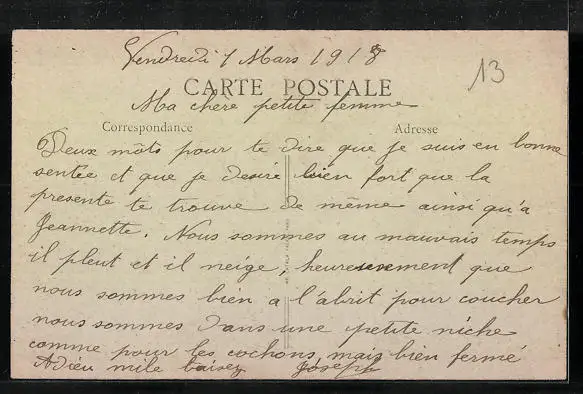 Vendredi 1 Mars 1918
13
CARTE POSTALE
Ma chère petite femme
Correspondance
Adresse
Deux mots pour te dire que je suis en bonne
sentée et que je desiré bien fort que la
presente te trouve de même ainsi qu'a
Jeannette. Nous sommes au mauvais temps
il pleut et il neige, heureusement que
nous sommes bien a l'abrit pour coucher
nous sommes dans une petite niche
comme pour les cochons, mais bien fermé
Adieu mile baisez Joseph